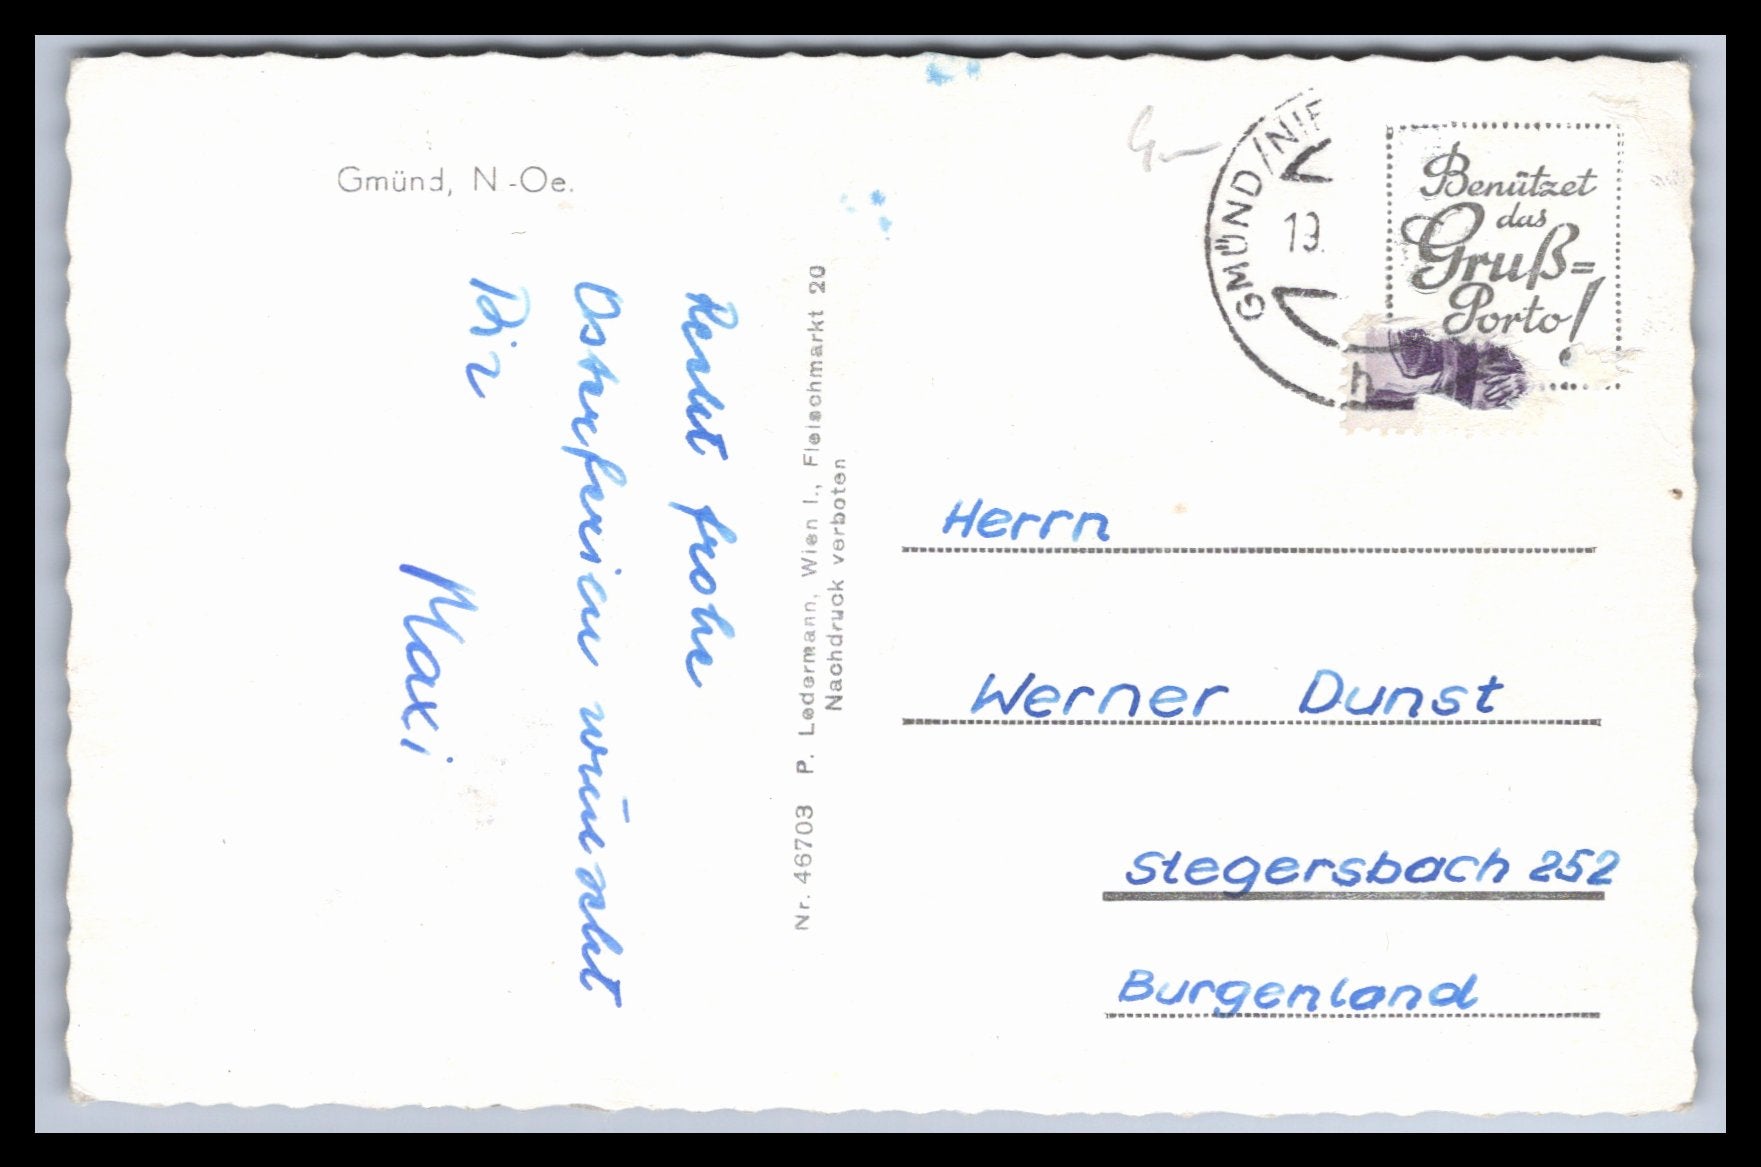 Gmünd, N-Oe.
Recht frohe
Osterferien wünscht
Dir
Maxi
Nr. 46703 P. Ledermann, Wien I., Fleischmarkt 20
Nachdruck verboten
GMÜND/NIE
19.
Benützet
das
Gruß=
Porto!
h
Herrn
Werner Dunst
Stegersbach 252
Burgenland